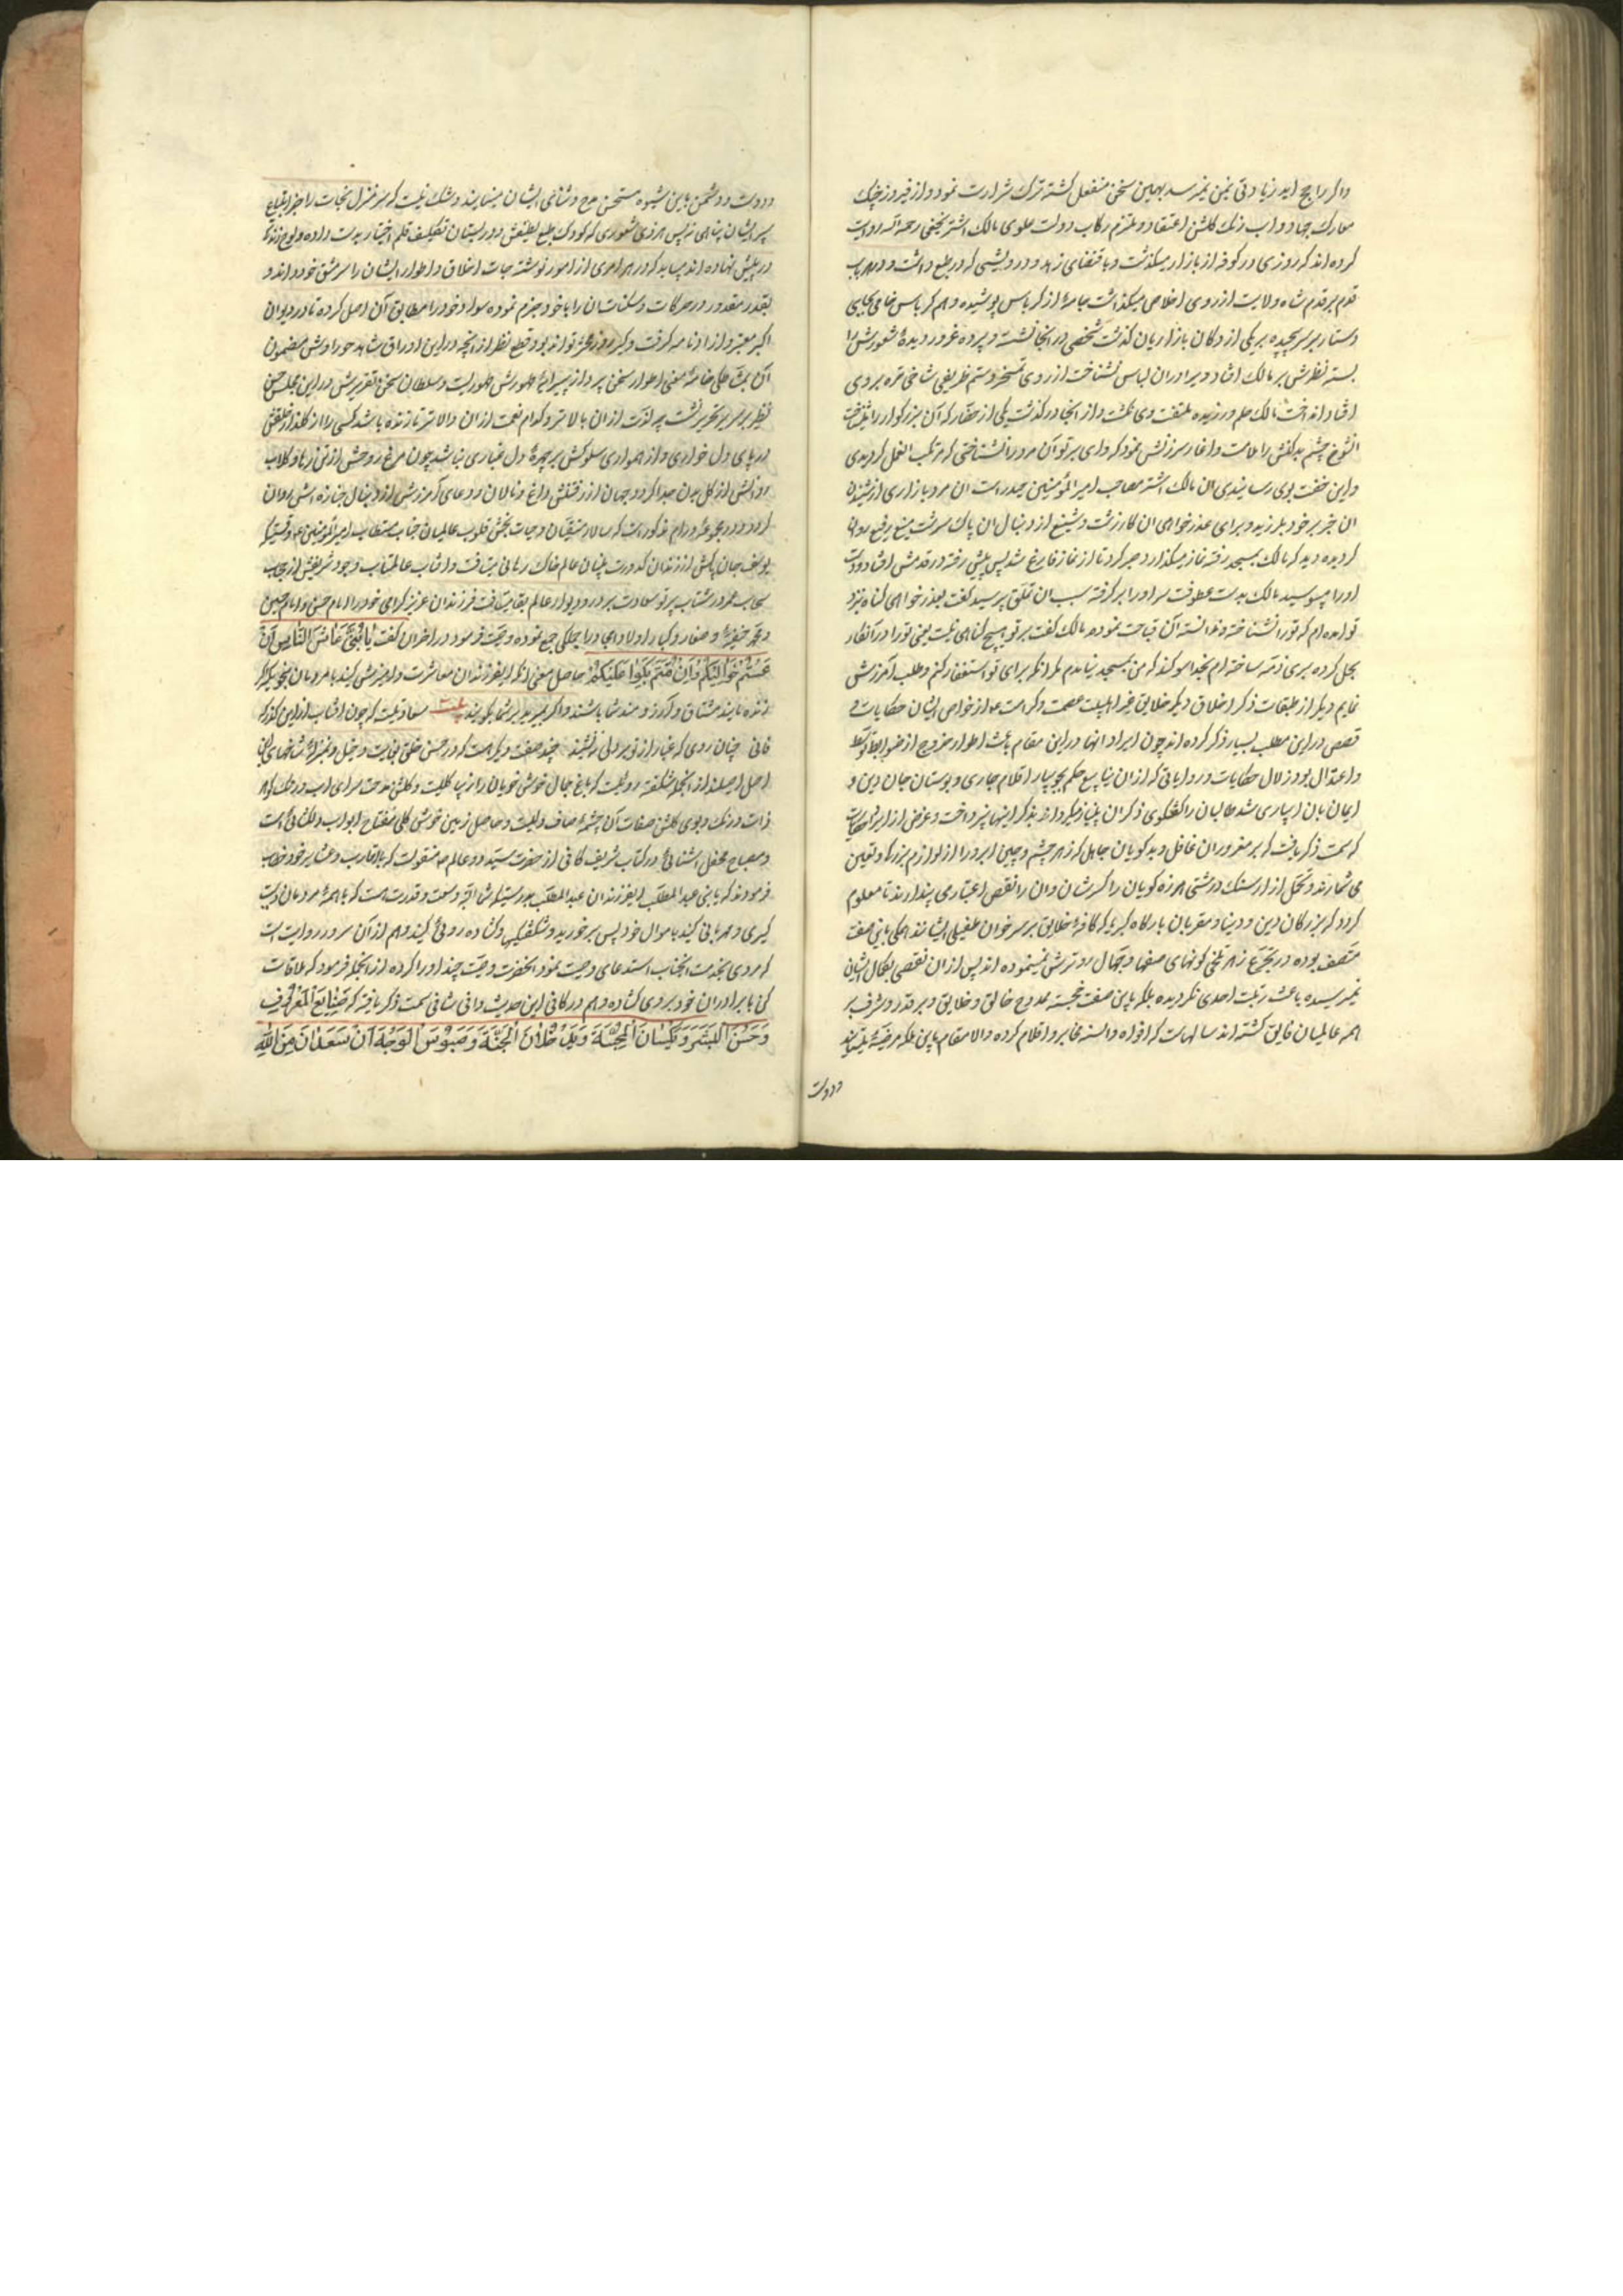 واگر راجح آید زیادتی یمن نمیرسد بهمین سخن منفعل گشته ترک شرارت نمود و از فیروز جنگ
معارک جهاد و آب و رنگ گلشن اعتقاد و ملتزم رکاب دولت علوی مالک اشتر نخعی رحمه الله روایت
کرده اند که روزی در کوفه از بازار میگذشت و باقتضای زهد و درویشی که در طبع داشت و در هر باب
قدم بر قدم شاه ولایت از روی اخلاص میگذاشت جامهٔ از کرباس پوشیده و هم کرباس خامی بجای
دستار بر سر پیچیده بر یکی از دکان بازاریان گذشت شخصی در آنجا نشسته و پرده غرور دیدهٔ شعورش را
بسته نظرش بر مالک افتاد و برادران لباس نشناخت از روی تمسخر و ستم ظریفی شاخی تره بر وی
انداخت مالک حلم ورزیده ملتفت وی نگشت و از آنجا درگذشت یکی از حضار که آن بزرگوار را میشناخت
گشوده زبان ملامت و آغاز سرزنش نمود که وای بر تو آن مرد را نشناختی که مرتکب این عمل گردیدی
و این خفت بوی رسانیدی آن مالک اشتر مصاحب امیر المؤمنین حیدر است آن مرد بازاری از شنیدن
این خبر بر خود بلرزید و برای عذرخواهی آن کار زشت و شنیع از دنبال آن پاک سرشت منیع رفیع روانه
گردیده دید که مالک بمسجد رفته نماز میگذارد صبر کرد تا از نماز فارغ شد پس پیش رفته در قدمش افتاد و دست
او را میبوسید مالک بدست عطوفت سر او را برگرفته سبب آن تملق پرسید گفت بعذر خواهی گناه نزد
تو آمده ام که تو را نشناخته و ندانسته آن قباحت نمودم مالک گفت بر تو هیچ گناهی نیست یعنی تو را در آن کار
بحل کرده بری ذمه ساخته ام بخدا سوگند که من بمسجد نیامدم مگر آنکه برای تو استغفار کنم و طلب آمرزش
نمایم دیگر از طبقات ذکر اخلاق دیگر خلایق غیر اهلبیت عصمت و کرامت از خواص ایشان حکایات و
قصص در این مطلب بسیار ذکر کرده اند چون ایراد آنها در این مقام باعث اطوار خروج از ضوابط توسط
و اعتدال بود زلال حکایات و روایاتی که از آن ینابیع حکم بجویبار اقلام جاری و بوستان جان دین و
ایمان بآن آبیاری شد طالبان را گفتگوی ذکر آن بی نیاز میگرداند بذکر اینها نپرداخت و غرض از ایراد حکایات
که سمت ذکر یافت که بر مغروران غافل و بدگویان جاهل که زهر چشم و چین ابرو را از لوازم بزرگی و تعین
می شمارند و تحمل آزار سنگ درشتی هرزه گویان را کسر شان و آن را نقص اعتباری پندارند تا معلوم
گردد که بزرگان دین و دنیا و مقربان بارگاه کبریا که کافهٔ خلایق بر سر خوان طفیلی ایشانند همگی باین صفت
متصف بوده در تجرع زهر تلخی گونهای سفها و جهال رو ترش نمینموده اند پس از آن نقصی بکمال ایشان
نمیرسیده باعث رتبت احدی نگردیده بلکه باین صفت خجسته ممدوح خالق و خلایق و بر قدر و شرف بر
همه عالمیان فایق گشته اند سالهاست که افواه و السنه محابر و اقلام کرده والا مقام باین ملکه مرضیه
و دوست
و دوست و دشمن باین شیوه مستحسن مدح و ثنای ایشان مینمایند و شک نیست که سر منزل نجات را جز باتباع
سیر ایشان راهی نه پس هر ذی شعوری که کودک طبع لطیفش در دبیرستان تکلیف قلم اختیار بدست داده و لوح زندگی
در پیش نهاده اند میباید که در هر امری از امور نوشته جات اخلاق و اطوار ایشان را سرمشق خود داند و
بقدر مقدور در حرکات و سکنات آن را با خود جزم نموده سواد خود را مطابق آن اصل کرده تا در دیوان
اکبر معتبر و از او نامه گرفت و گیر روز محشر تواند بود و قطع نظر از آنچه در این اوراق شاهد حوراوش مضمون
آن بمشاطگی خامهٔ معنی اطوار سخن پرداز پیرایهٔ ظهورش ظهوریست و سلطان سخن بتقریرش در این مجلس حسن
نظیر بر سریر تحریر نشست چه لذت از آن بالاتر و کدام نعمت از آن والاتر تا زنده باشد کسی را از گلزار خلقش
در پای دل خاری و از همواری سلوکش بر چهرهٔ دل غباری نباشد چون مرغ روحش از تن رها و گلاب
روانش از گل بدن جدا گردد جهان از رفتنش داغ و نالان و دعای آمرزش از دنبال جنازه اش روان
گردد و در مجموعهٔ ورام مذکور است که سالار متقیان و حیات بخش قلوب عالمیان جناب مستطاب امیر المؤمنین ع وقتیکه
یوسف جان پاکش از زندان کدورت بنیان عالم خاک رهائی مییافت و آفتاب عالمتاب وجود شریفش از حجاب
سحاب عمر در شتاب پرتو سعادت بر در و دیوار عالم بقا میتافت فرزندان عزیز گرامی خود را امام حسن و امام حسین
و محمد حنفیه و صغار و کبار اولاد امجاد را جملگی جمع نموده وصیت فرمود در آخر آن گفت یَا بُنَیَّ عَاشِرُوا النَّاسَ اِنْ
عِشْتُمْ حَنُّوا اِلَیْکُمْ وَاِنْ مُتُّمْ بَکَوْا عَلَیْکُمْ حاصل معنی آنکه ای فرزندان معاشرت و آمیزش کنید با مردمان بنحوی که اگر
زنده باشید مشتاق و آرزومند شما باشند و اگر بمیرید بر شما بگریند سعادتیست که چون آفتاب از این گذرگه
فانی چنان روی که غبار از تو بر دلی ننشیند چند صفت دیگر است که در حسن خلق بغایت دخیل و بمنزلهٔ شاخهای این
اصل اصیلند از آنجمله شگفته روئیست که باغ جمال خوش خویان را زیبا گلیست و گلشن مدحت سرای آب و رنگ گوهر
ذات و رنگ و بوی گلشن صفات آن چشمهٔ صاف دلیست و حاصل زمین خوش گلی مفتاح ابواب دلگشائی است
و مصباح محفل آشنائی در کتاب شریف کافی از حضرت سید دو عالم ص منقولست که باقارب و عشایر خود خطاب
فرمودند که یا بنی عبد المطلب ای فرزندان عبد المطلب بدرستیکه شما را نه وسعت و قدرت هست که با همهٔ مردمان دست
گیری و مهربانی کنید باموال خود پس برخورید بشگفتگی و گشاده روئی کنید و هم از آن سرور روایت است
که مردی بخدمت آنجناب استدعای وصیت نمود آنحضرت وصیت چند او را کرده از آنجمله فرمود که ملاقات
کن با برادران خود بروی گشاده و هم در کافی این حدیث وافی شافی سمت ذکر یافته که صَنَایِعُ الْمَعْرُوفِ
وَحُسْنُ الْبِشْرِ وَیَکْسِبَانِ الْمَحَبَّةَ وَیُدْخِلَانِ الْجَنَّةَ وَعُبُوسُ الْوَجْهِ مِنَ اللهِ